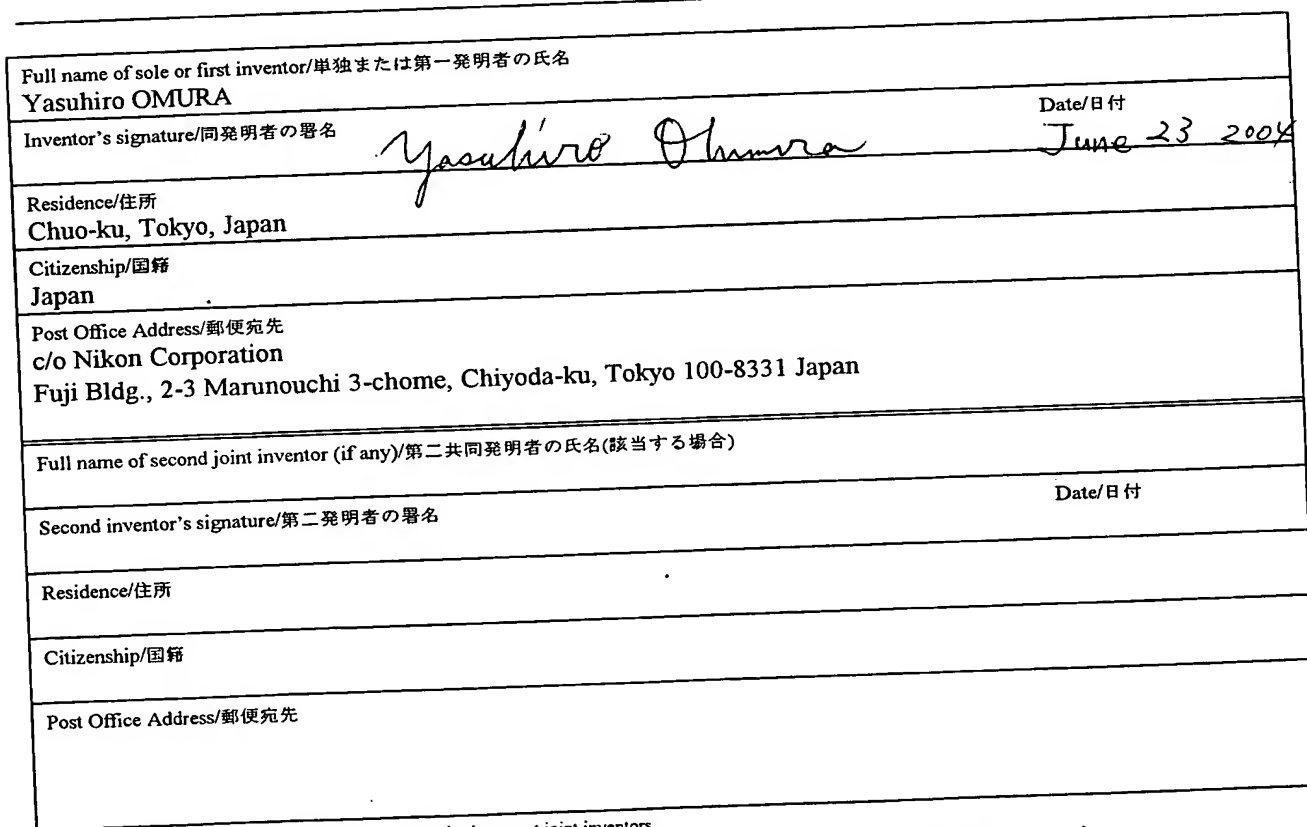 Full name of sole or first inventor/単独または第一発明者の氏名
Yasuhiro OMURA
Inventor's signature/同発明者の署名 Yasuhiro Ohmura Date/日付 June 23 2004
Residence/住所
Chuo-ku, Tokyo, Japan
Citizenship/国籍
Japan
Post Office Address/郵便宛先
c/o Nikon Corporation
Fuji Bldg., 2-3 Marunouchi 3-chome, Chiyoda-ku, Tokyo 100-8331 Japan
Full name of second joint inventor (if any)/第二共同発明者の氏名(該当する場合)
Second inventor's signature/第二発明者の署名 Date/日付
Residence/住所
Citizenship/国籍
Post Office Address/郵便宛先
joint inventors